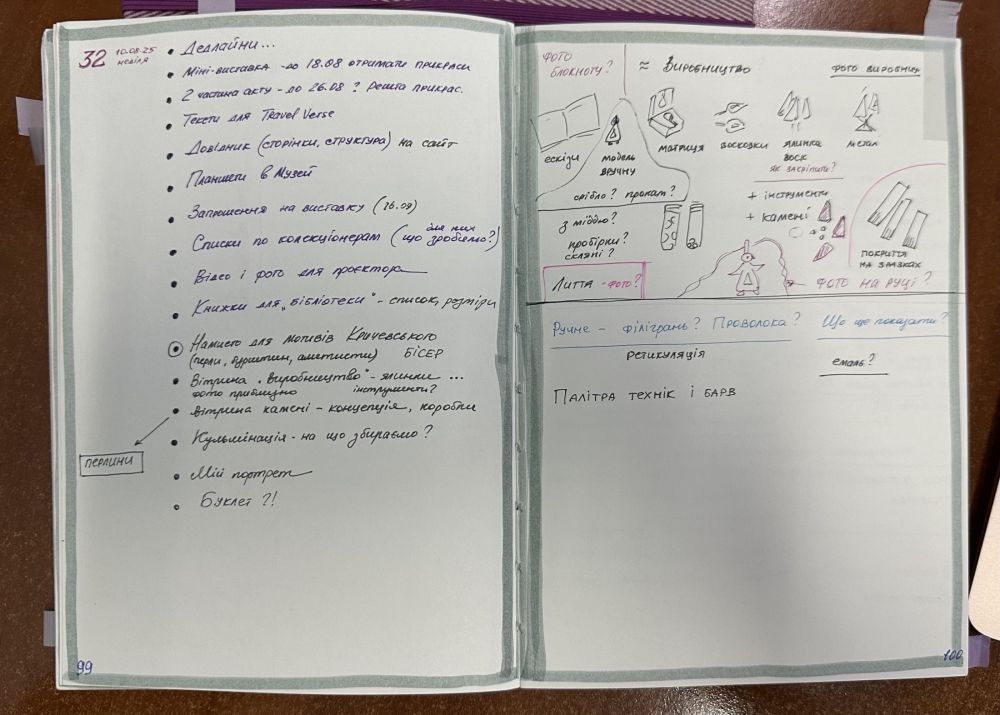 32 10.08.25
неділя
• Дедлайни...
• Міні-виставка - до 18.08 отримати прикраси
• 2 частина акту - до 26.08 ? решта прикрас.
• Тексти для Travel Verse
• Довідник (сторінки, структура) на сайт
• Планшети в Музей
• Запрошення на виставку (26.09)
• Списки по колекціонерам (що для них зробімо?)
• Відео і фото для проєктора
• Книжки для „бібліотеки" - список, розміри
• Намисто для мотивів Кричевського
(перли, бурштин, аметисти) БІСЕР
• Вітрина „виробництво" - ялинки ...
фото приблизно інструменти?
• Вітрина камені - концепція, коробки
ПЕРЛИНИ
• Кульмінація - на що збираємо?
• Мій портрет
• Буклет ?!
99
ФОТО
БЛОКНОТУ?
≈ Виробництво
ФОТО ВИРОБНИЦ
ескізи
модель
вручну
матриця
восковки
ялинка
воск
метал
як закріпити?
срібло? прокат?
+ інструменти
+ камені
з міддю?
пробірки?
скляні?
ПОКРИТТЯ
НА ЗРАЗКАХ
Лиття - фото?
ФОТО НА РУЦІ?
Ручне - філігрань? Проволока?
Що ще показати?
ретикуляція
емаль?
Палітра технік і барв
100